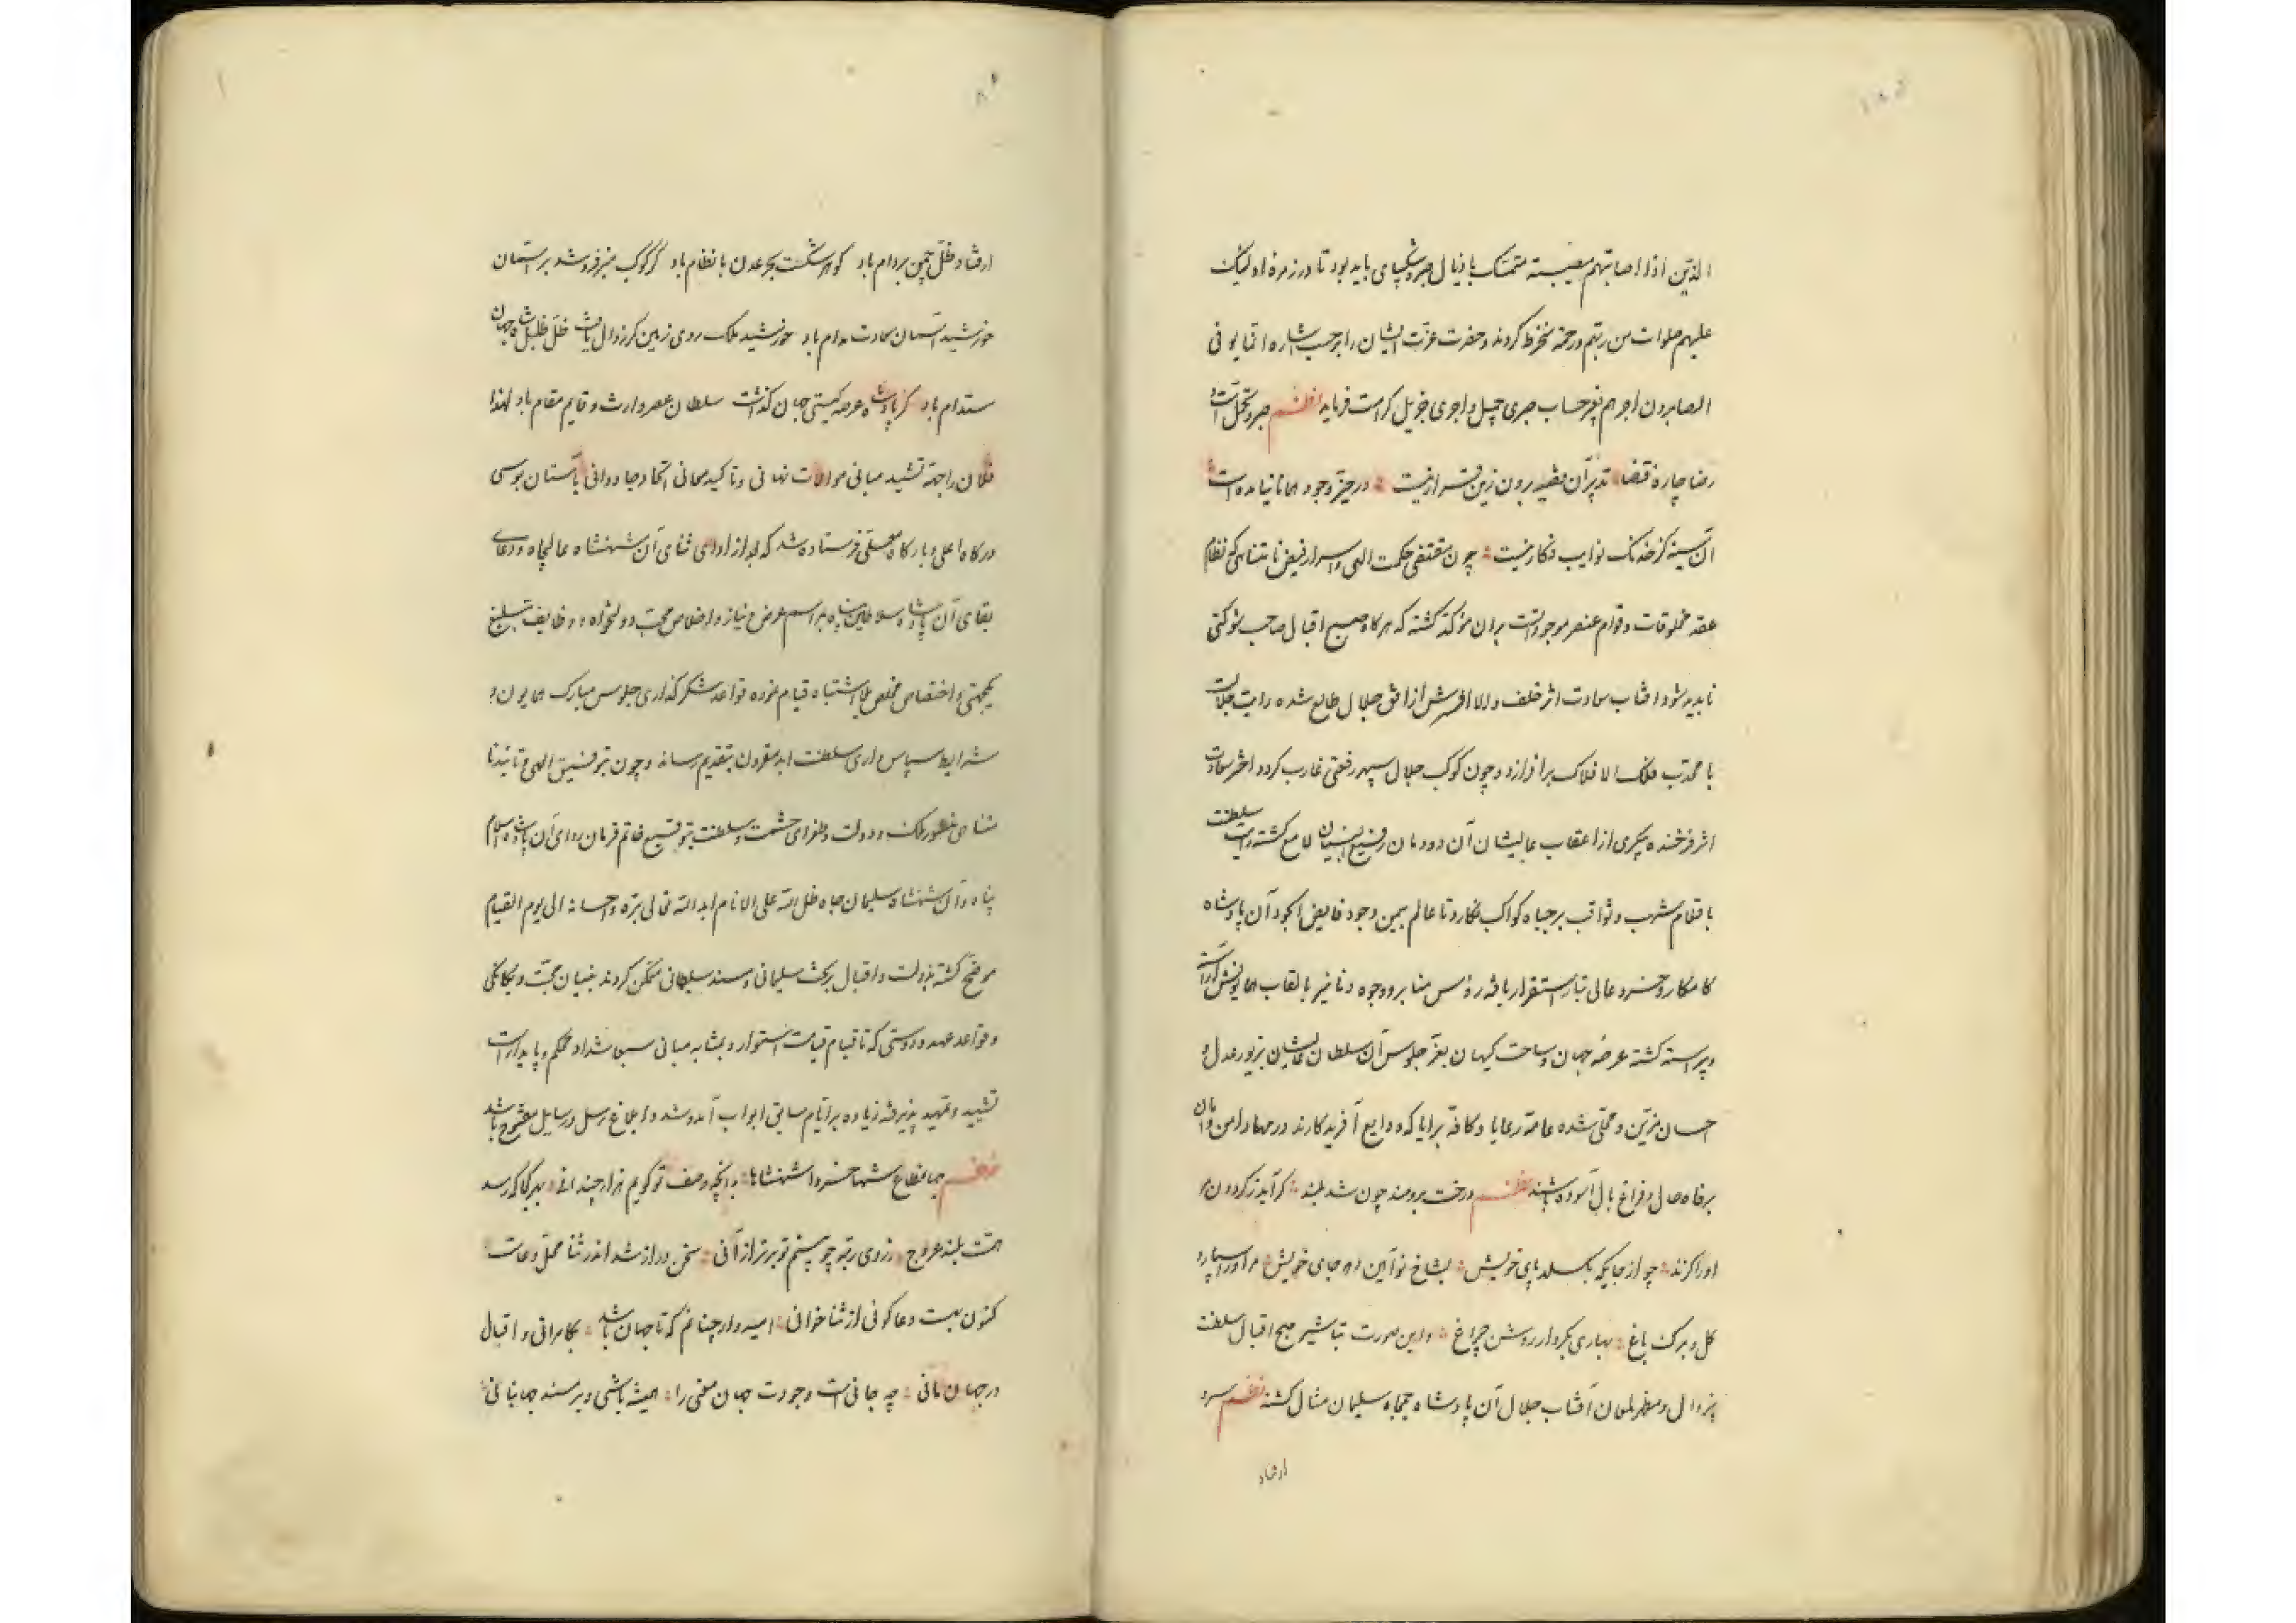 الذین اذا اصابتهم مصیبته متمسک باذیال صبر و شکیبای باید بود تا در زمره اولیک
علیهم صلوات من ربهم ورحمة منخرط کردند و حضرت عزت ایشان را بر حسب اشاره انما یوفی
الصابرون اجرهم بغیر حساب صبری جمیل و اجری جزیل کرامت فرماید نظم صبر و تحمل است و
رضا چاره قضا تدبیر آن مقید برون زین قرار نیست در حیز وجود همانا نیامده است
آن سینه کز خدنک نوایب فکار نیست چون مقتضی حکمت الهی و اسرار فیض نامتناهی که نظام
عقد مخلوقات و قوام عنصر موجوداتست بران مؤکد کشته که هرکاه صبح اقبال صاحب شوکتی
ناپدید شود افتاب سعادت اثر خلف والا افسرش از افق جلال طالع شده رایت جلالت
با محدب فلک الافلاک برافرازد و چون کوکب جلال سپهر رفعتی غارب کردد اختر سعادت
اثر فرخنده پیکری از اعقاب عالیشان آن دودمان رفیع البنیان لامع کشته رایت سلطنت
باقلام شهب و ثواقب بر جباه کواکب نکارد تا عالم بیمن وجود فایض الجود آن پادشاه
کامکار و خسرو عالی تبار استقرار یافته رؤس منابر و وجوه دنانیر بالقاب همایونش آراسته
و پیراسته کشته عرصه جهان و ساحت کیهان بعز جلوس آن سلطان عالیشان بزیور عدل و
احسان مزین و محلی شده عامه رعایا و کافه برایا که ودایع آفریدکارند در مهاد امن و امان
برفاه حال و فراغ بال آسوده باشند نظم درخت برومند چون شد بلند کر آید ز کردون برو
اورا کزند چو از جایکه بکسلد پای خویش بشاخ نوآیین دهد جای خویش مر اورا سپارد
کل و برک باغ بهاری بکردار روشن چراغ و این صورت تباشیر صبح اقبال سلطنت
بیزوال و مظهر لمعان آفتاب جلال آن پادشاه جمجاه سلیمان مثال کشته نظم سرو
ارفتاد
ارفتاد ظل چمن بردوام باد کوهر شکست بحر عدن با نظام باد کر کوکب منیر فروشد بر آسمان
خورشید آسمان سعادت مدام باد خورشید ملک روی زمین کر زوال یافت ظل ظلیل شاه جهان
مستدام باد کر پادشاه عرصه کیتی جهان کذاشت سلطان عصر وارث و قایم مقام باد لهذا
فلان را جهة تشیید مبانی موالات نهانی و تاکید معانی اتحاد جاودانی بآستان بوسی
درکاه اعلی و بارکاه معلی فرستاده شد که بعد از ادای ثنای آن شهنشاه عالیجاه و دعای
بقای آن پادشاه سلاطین پناه بمراسم عرض نیاز و اخلاص محب دولتخواه و وظایف تبلیغ
یکجهتی و اختصاص مخلص بلا اشتباه قیام نموده قواعد شکرکذاری جلوس مبارک همایون و
شرایط سپاس داری سلطنت ابد مقرون بتقدیم رساند و چون بتوفیق الهی و تائید نا
متناهی منشور ملک و دولت و طغرای حشمت و سلطنت بتوقیع خاتم فرمان روای آن پادشاه اسلام
پناه و آن شهنشاه سلیمان جاه ظل الله علی الانام ابد الله تعالی بره و احسانه الی یوم القیام
موضح کشته بدولت و اقبال بر تخت سلیمانی و مسند سلطانی متمکن کردند بنیان محبت و یکانکی
و قواعد عهد و دوستی که تا قیام قیامت استوار و بمثابه مبانی سبعا شدادا محکم و پایدار است
تشیید و تمهید پذیرفته زیاده بر ایام سابق ابواب آمد و شد و ابلاغ رسل و رسایل مفتوح باشد
نظم جهانمطاع شها خسروا شهنشاها بدانچه وصف تو کویم هزار چندانی بهر کجا که رسد
همت بلند عروج ز روی رتبه چو بینم تو برتر از آنی سخن دراز شد اندر ثنا محل دعاست
کنون بهست دعا کوئی از ثنا خوانی امیدوار چنانم که تا جهان باشد بکامرانی و اقبال
در جهان مانی چه جانی است وجودت جهان معنی را همیشه باشی و بر مسند جهانبانی